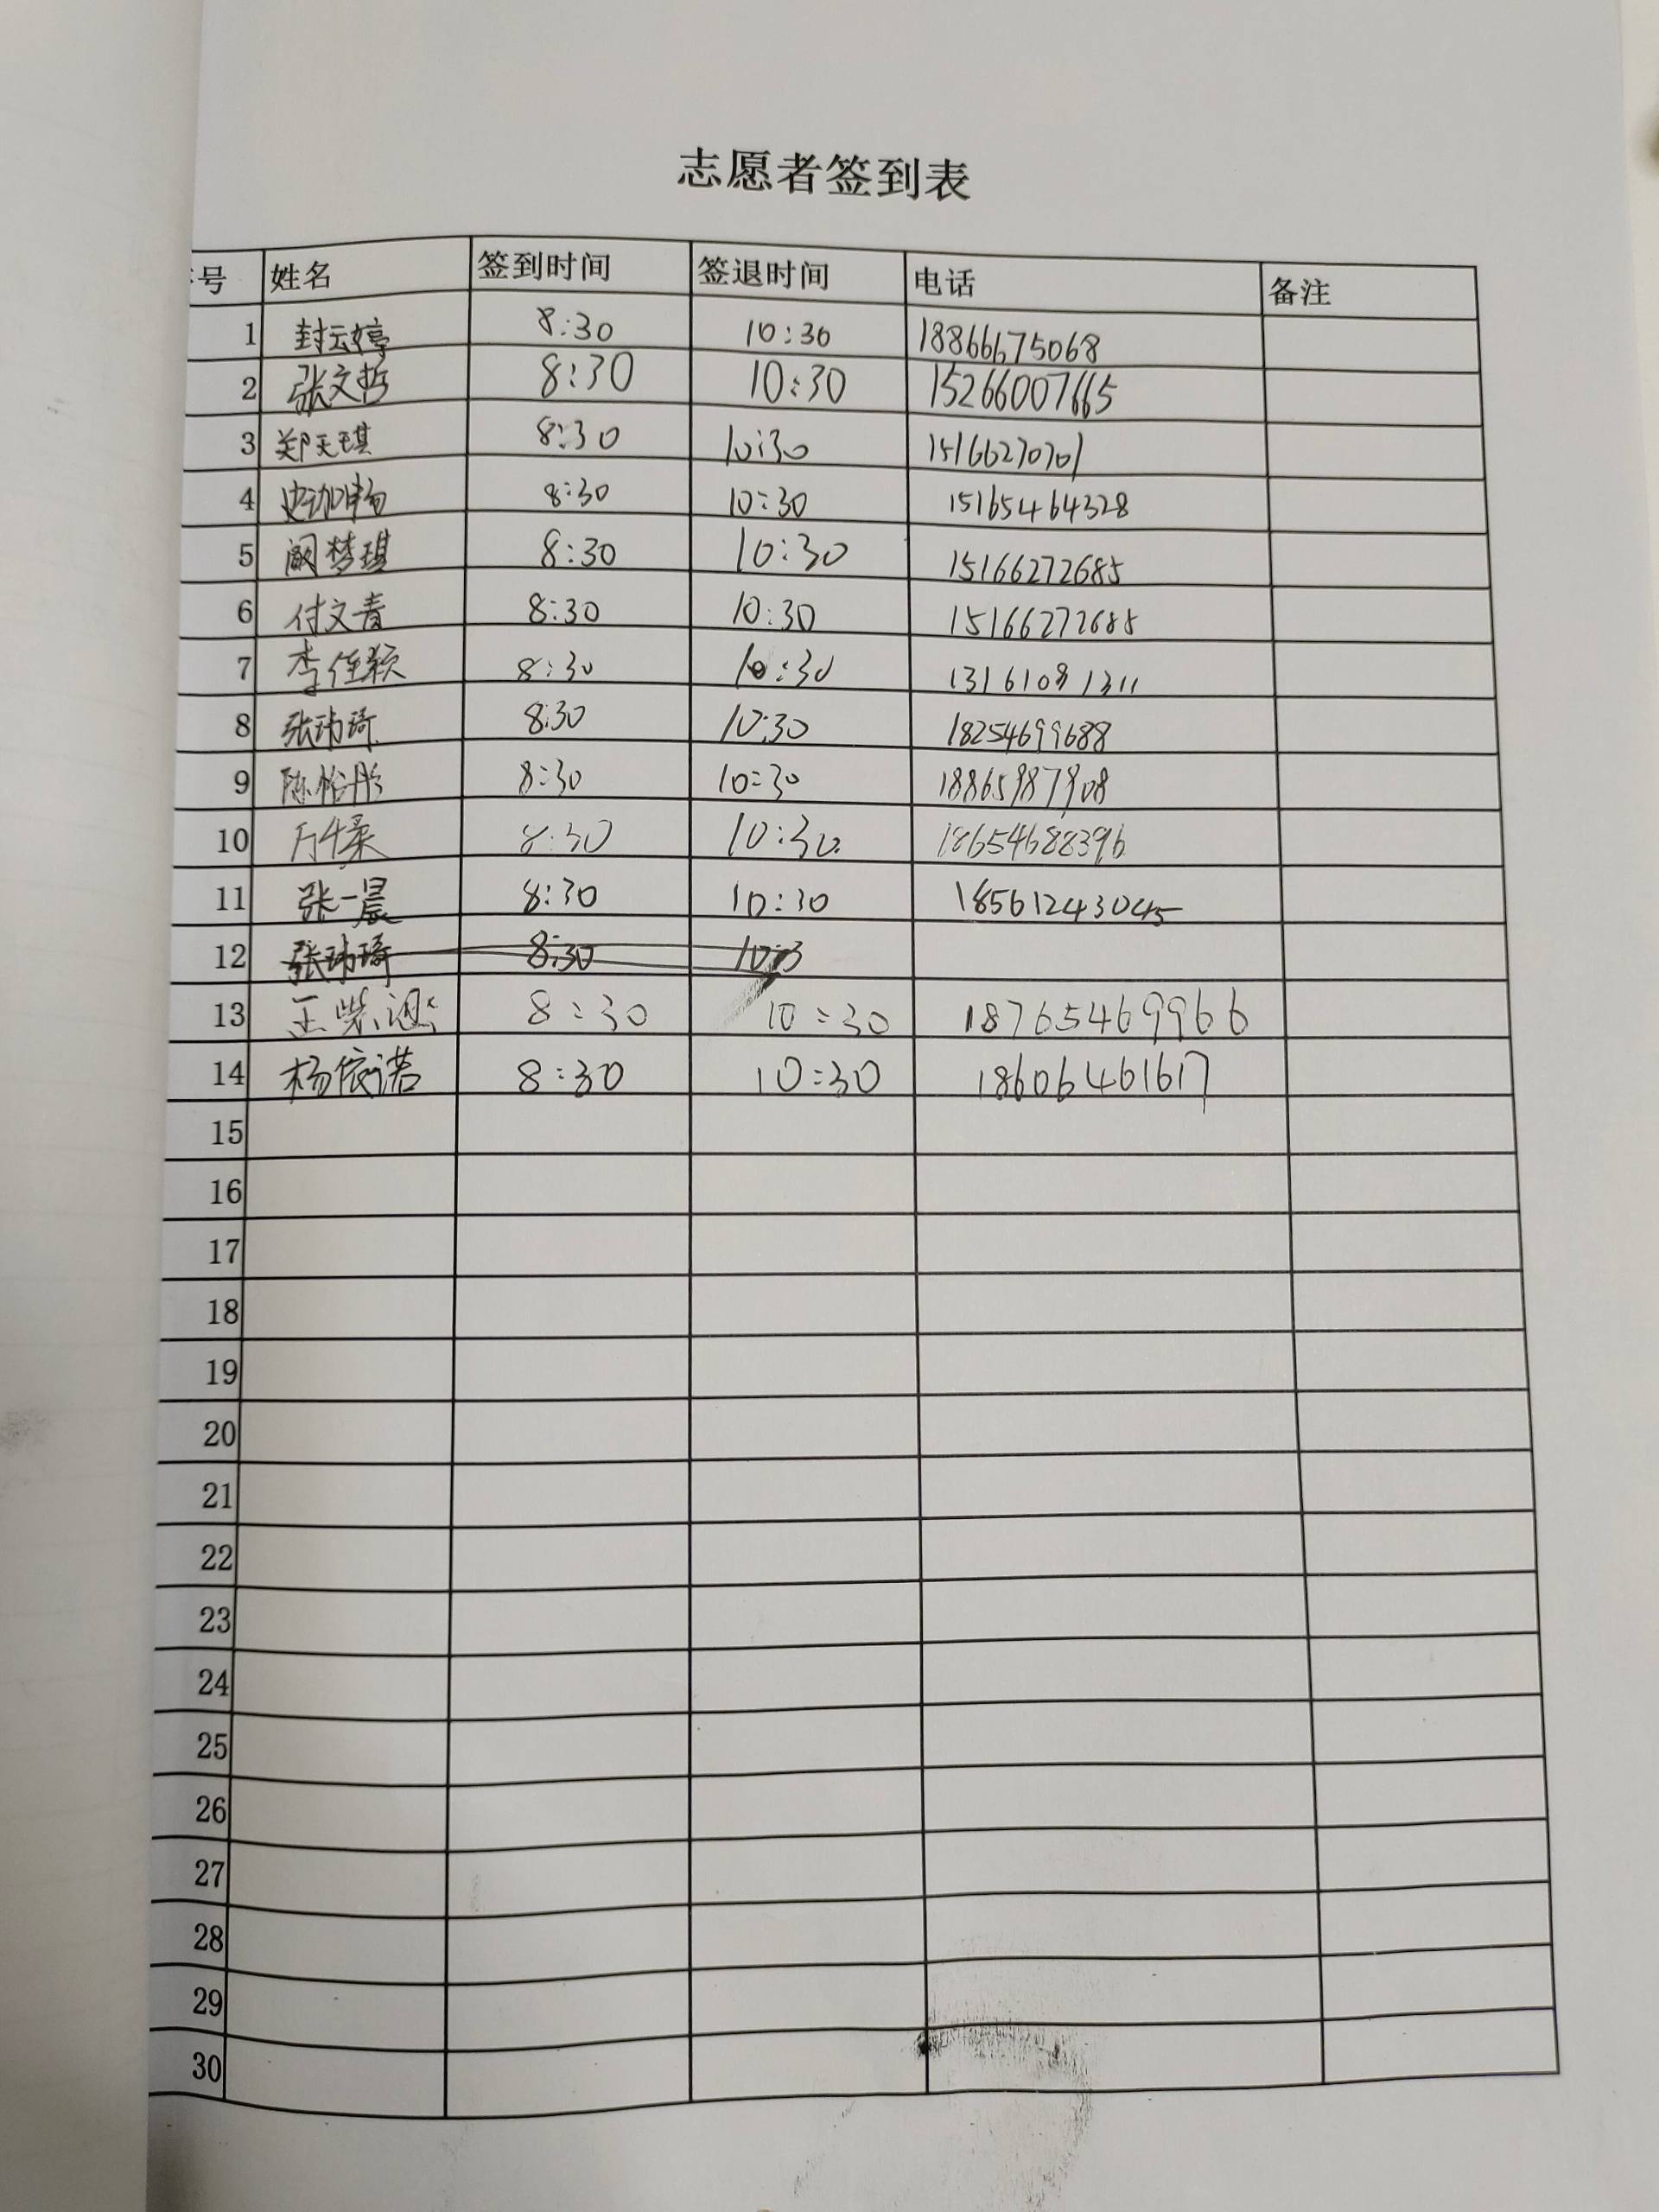 志愿者签到表
号 姓名 签到时间 签退时间 电话 备注
1 封云婷 8:30 10:30 18866675068
2 张文哲 8:30 10:30 15266007665
3 郑天琪 8:30 10:30 15166270701
4 8:30 10:30 15165464328
5 阚梦琪 8:30 10:30 15166272685
6 付文青 8:30 10:30 15166272685
7 李佳颖 8:30 10:30 13161081311
8 张玮琦 8:30 10:30 18254699688
9 陈怡彤 8:30 10:30 18865987908
10 万千柔 8:30 10:30 18654688396
11 张一晨 8:30 10:30 18561243045
12 张玮琦 8:30 10:3
13 8:30 10:30 18765469966
14 杨依诺 8:30 10:30 18606461617
15
16
17
18
19
20
21
22
23
24
25
26
27
28
29
30